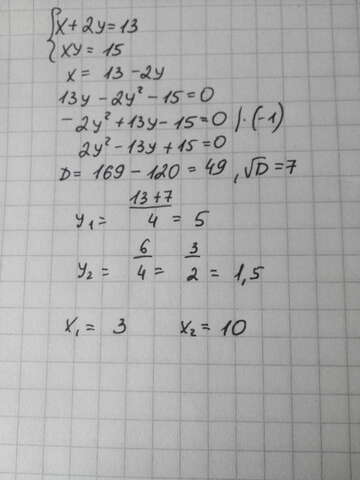 {x + 2y = 13
xy = 15
x = 13 - 2y
13y - 2y² - 15 = 0
- 2y² + 13y - 15 = 0 | · (-1)
2y² - 13y + 15 = 0
D = 169 - 120 = 49, √D = 7
y₁ = (13 + 7)/4 = 5
y₂ = 6/4 = 3/2 = 1,5
x₁ = 3 x₂ = 10